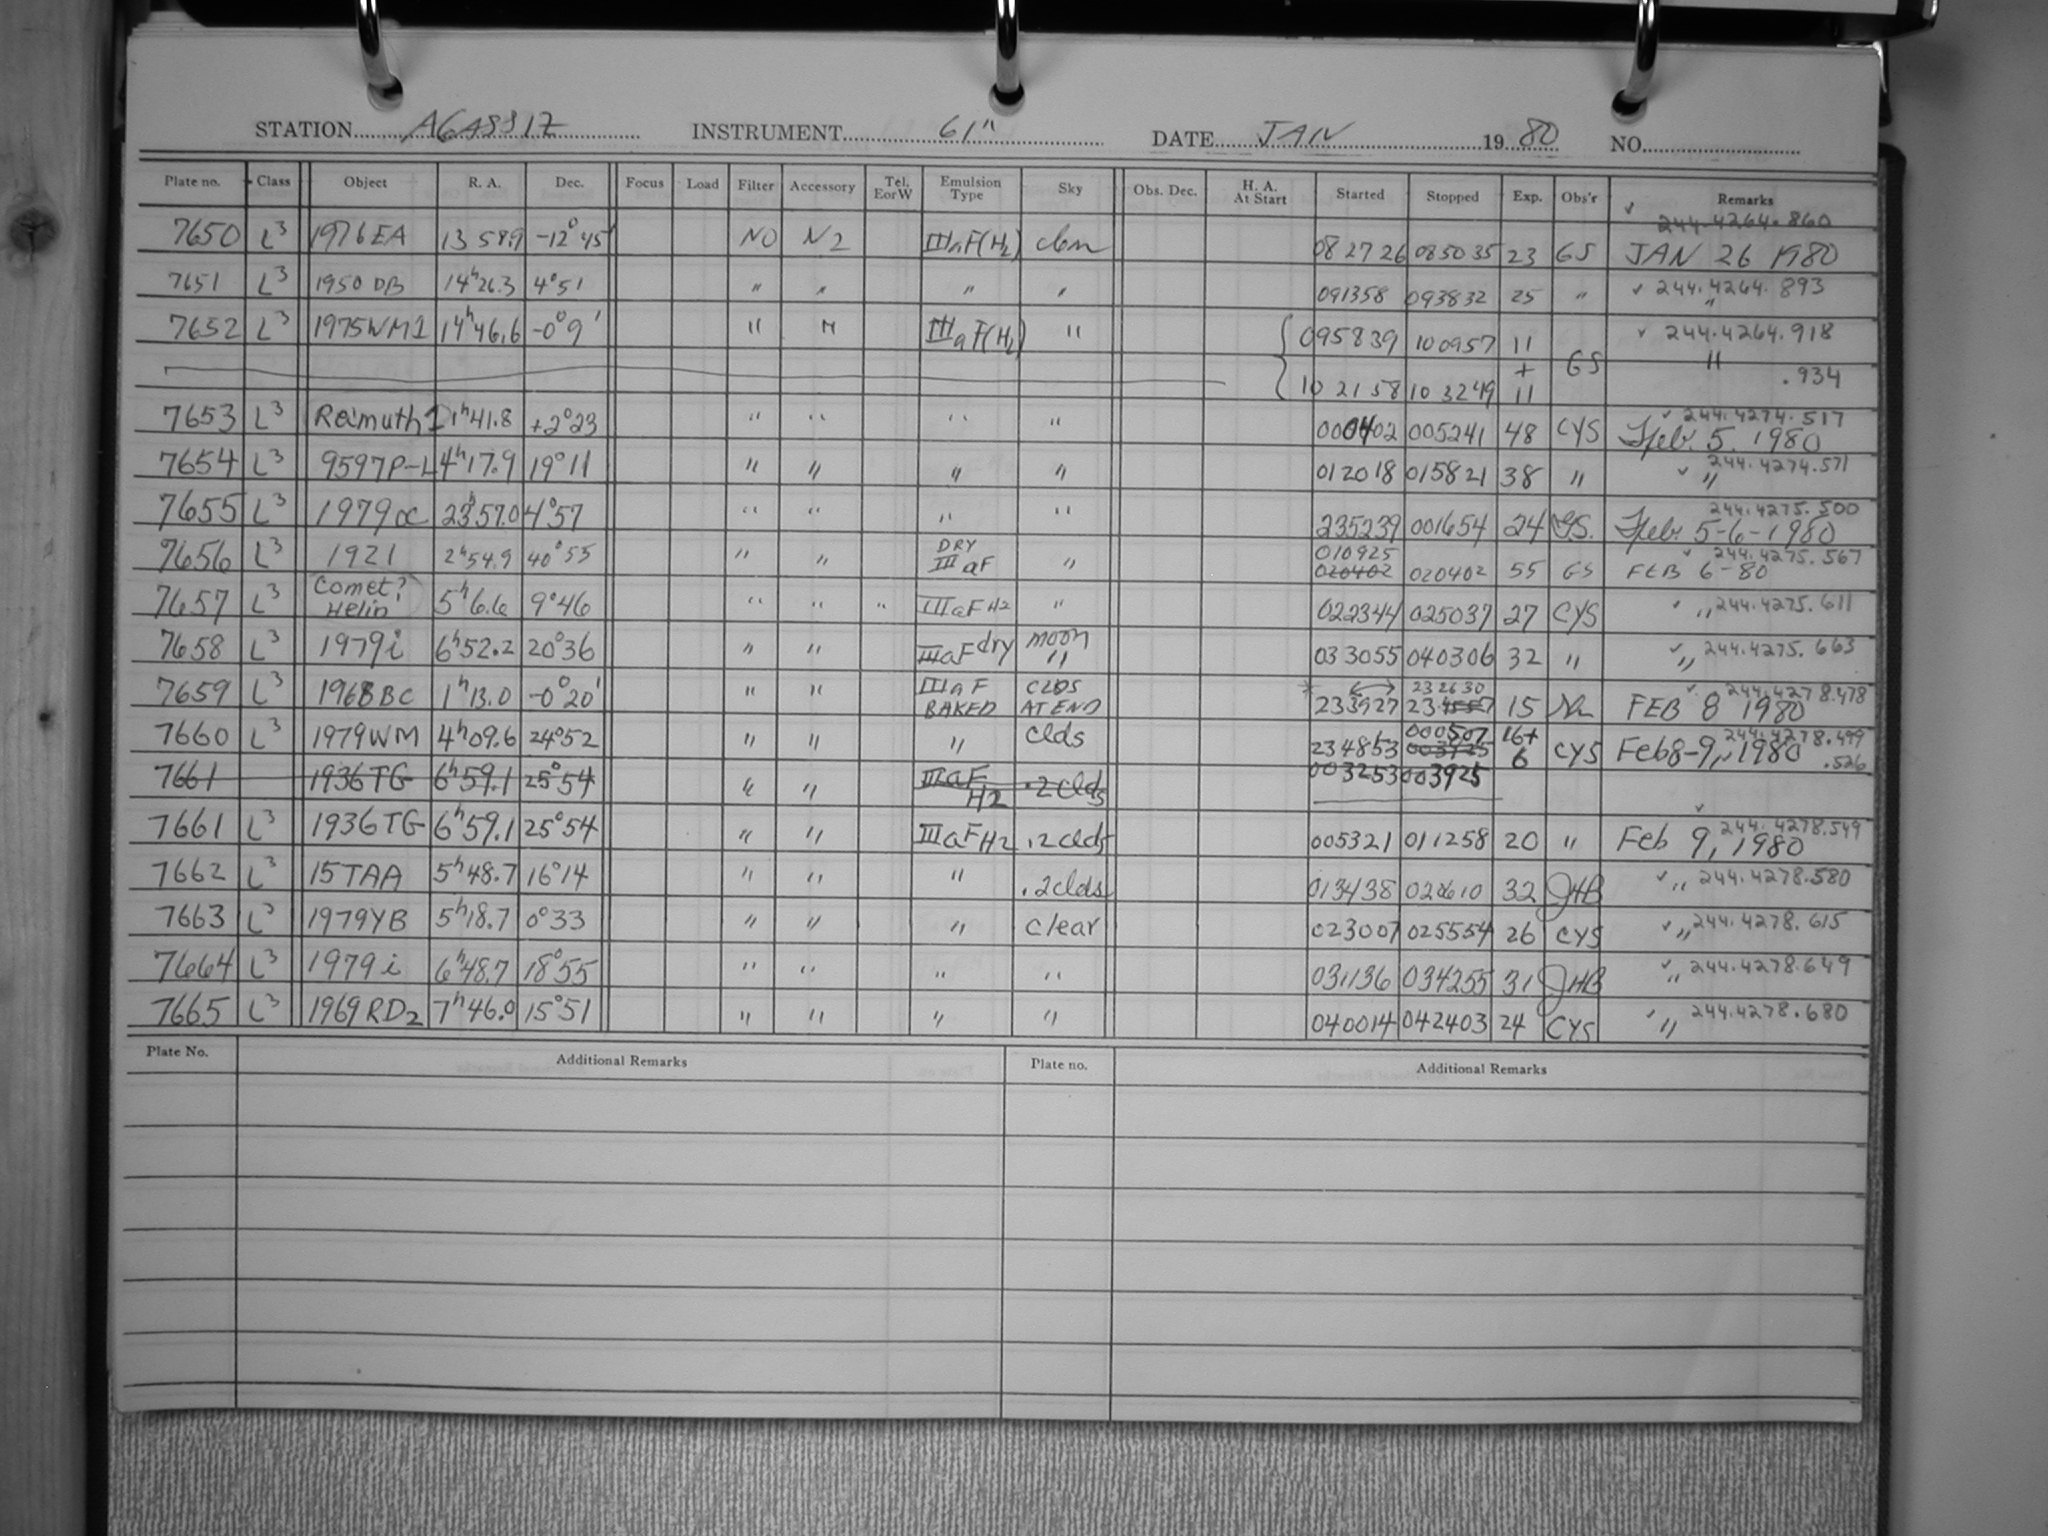 STATION AGASSIZ INSTRUMENT 61" DATE JAN 19 80 NO.
Plate no. Class Object R. A. Dec. Focus Load Filter Accessory Tel. E or W Emulsion Type Sky Obs. Dec. H. A. At Start Started Stopped Exp. Obs'r Remarks
7650 L3 1976EA 13 58.9 -12°45' NO N2 IIIaF(H2) 08 27 26 085035 23 GS 244.4264.860 JAN 26 1980
7651 L3 1950 DB 14h26.3 4°51 " " " " 091358 093832 25 " 244.4264.893 "
7652 L3 1975WM1 14h46.6 -0°9' " " IIIaF(H2) " 095839 100957 11 GS 244.4264.918 "
+
10 21 58 10 3249 11 .934
7653 L3 Reimuth 1 1h41.8 +2°23 " " " " 000402 005241 48 CYS 244.4274.517 Feb. 5. 1980
7654 L3 9597P-L 4h17.9 19°11 " " " " 012018 015821 38 " 244.4274.571 "
7655 L3 1979 23h57.0 4°57 " " " " 235239 001654 24 GS. 244.4275.500 Feb. 5-6-1980
7656 L3 1921 2h54.9 40°55 " " DRY IIIaF " 010925 020402 020402 55 GS 244.4275.567 FEB 6-80
7657 L3 Comet? Helin 5h6.6 9°46 " " " IIIaFH2 " 022344 025037 27 CYS " 244.4275.611
7658 L3 1979i 6h52.2 20°36 " " IIIaF dry moon " 033055 040306 32 " " 244.4275.663
7659 L3 1968BC 1h13.0 -0°20' " " IIIaF BAKED CLDS AT END * 233927 232630 15 244.4278.478 FEB 8 1980
7660 L3 1979WM 4h09.6 24°52 " " " clds 234853 000507 003925 16+ 6 CYS 244.4278.499 Feb 8-9, 1980 .526
7661 1936TG 6h59.1 25°54 " " IIIaF H2 .2clds 003253 003925
7661 L3 1936TG 6h59.1 25°54 " " IIIaFH2 .2clds 005321 011258 20 " 244.4278.549 Feb 9, 1980
7662 L3 15TAA 5h48.7 16°14 " " " .2clds 013438 020610 32 JHB " 244.4278.580
7663 L3 1979YB 5h18.7 0°33 " " " clear 023007 025554 26 CYS " 244.4278.615
7664 L3 1979i 6h48.7 18°55 " " " " 031136 034255 31 JHB " 244.4278.649
7665 L3 1969RD2 7h46.0 15°51 " " " " 040014 042403 24 CYS " 244.4278.680
Plate No. Additional Remarks Plate no. Additional Remarks